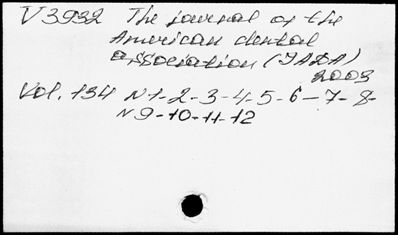 V3932 The journal of the
American dental
association (JADA)
2003
Vol. 134 N1-2-3-4-5-6-7-8-
N9-10-11-12